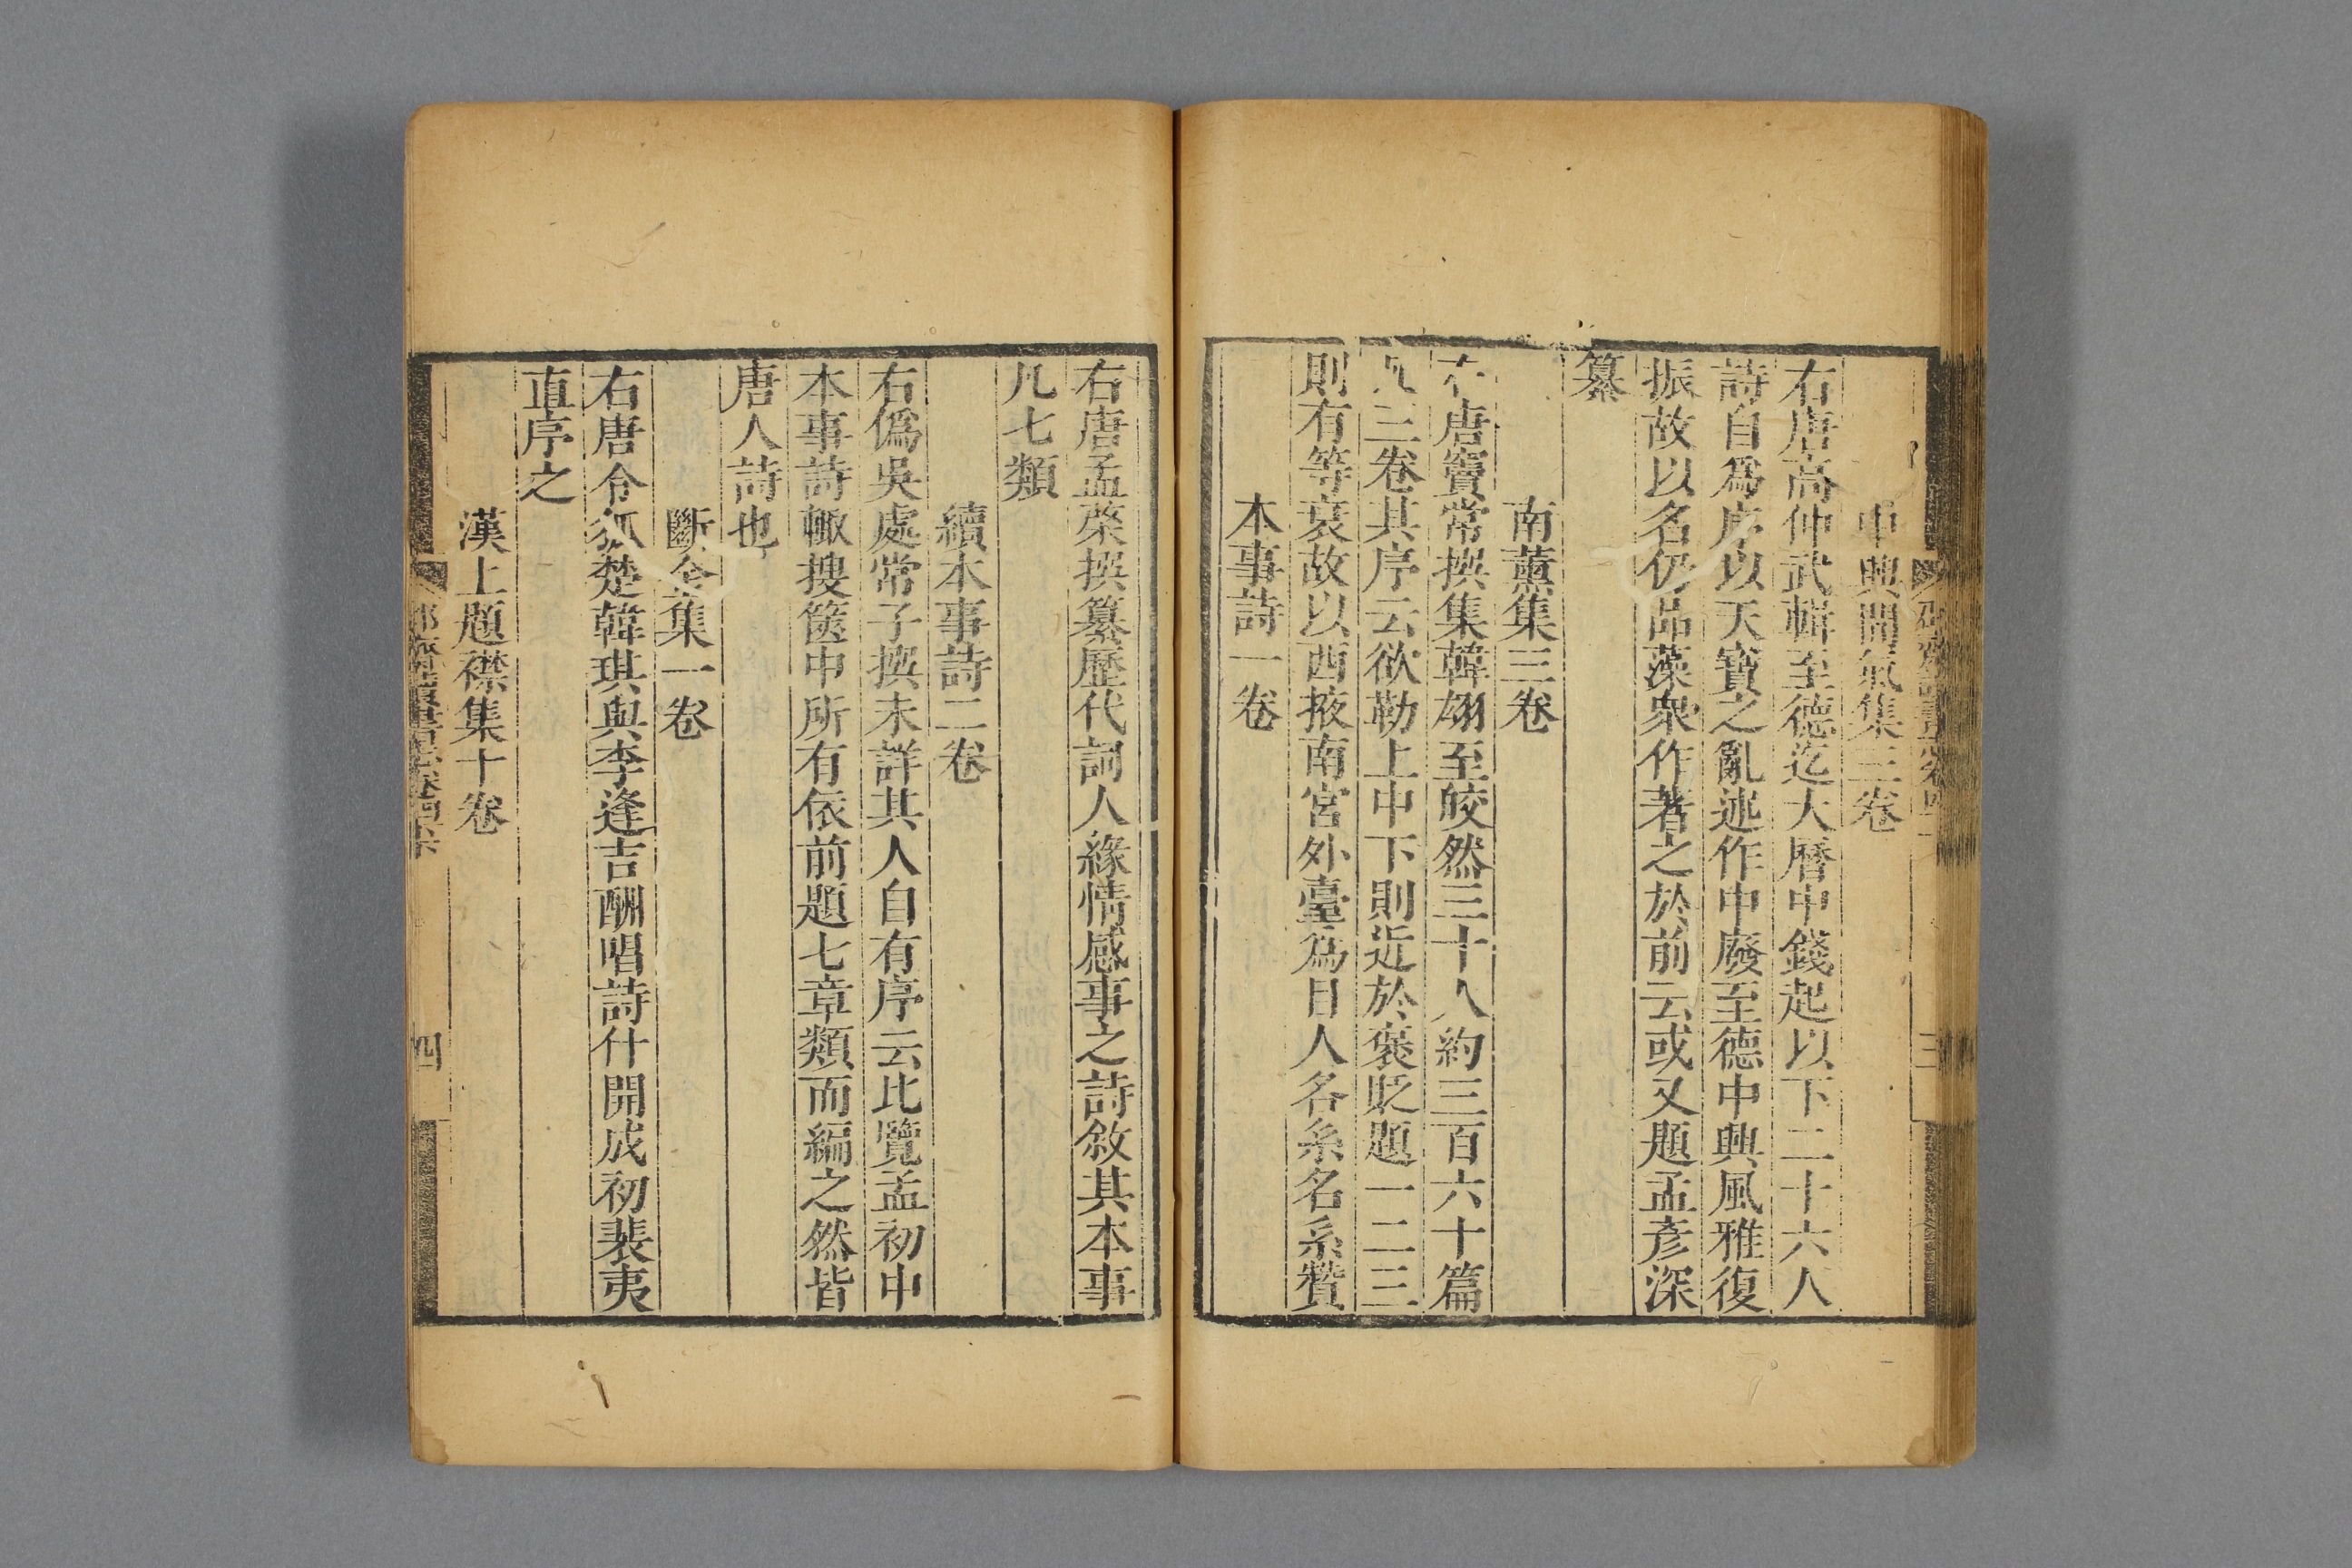 中興間氣集三卷
右唐高仲武輯至德迄大曆中錢起以下二十六人
詩自爲序以天寶之亂述作中廢至德中興風雅復
振故以名仍品藻衆作著之於前云或又題孟彥深
纂
南薰集三卷
右唐竇常撰集韓翃至皎然三十人約三百六十篇
凡三卷其序云欲勒上中下則近於褒貶題一二三
則有等衰故以西掖南宮外臺爲目人各系名系贊
本事詩一卷
右唐孟棨撰纂歷代詞人緣情感事之詩敘其本事
凡七類
續本事詩二卷
右僞吳處常子撰未詳其人自有序云比覽孟初中
本事詩輙搜篋中所有依前題七章類而編之然皆
唐人詩也
斷金集一卷
右唐令狐楚韓琪與李逢吉酬唱詩什開成初裴夷
直序之
漢上題襟集十卷
四